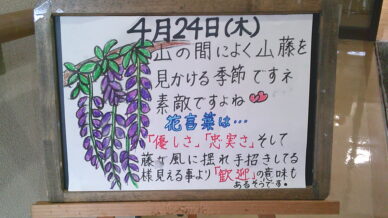 4月24日(木)
山の間によく山藤を
見かける季節ですネ
素敵ですよね
花言葉は…
「優しさ」「忠実さ」そして
藤が風に揺れ手招きしてる
様見える事より「歓迎」の意味も
あるそうです。